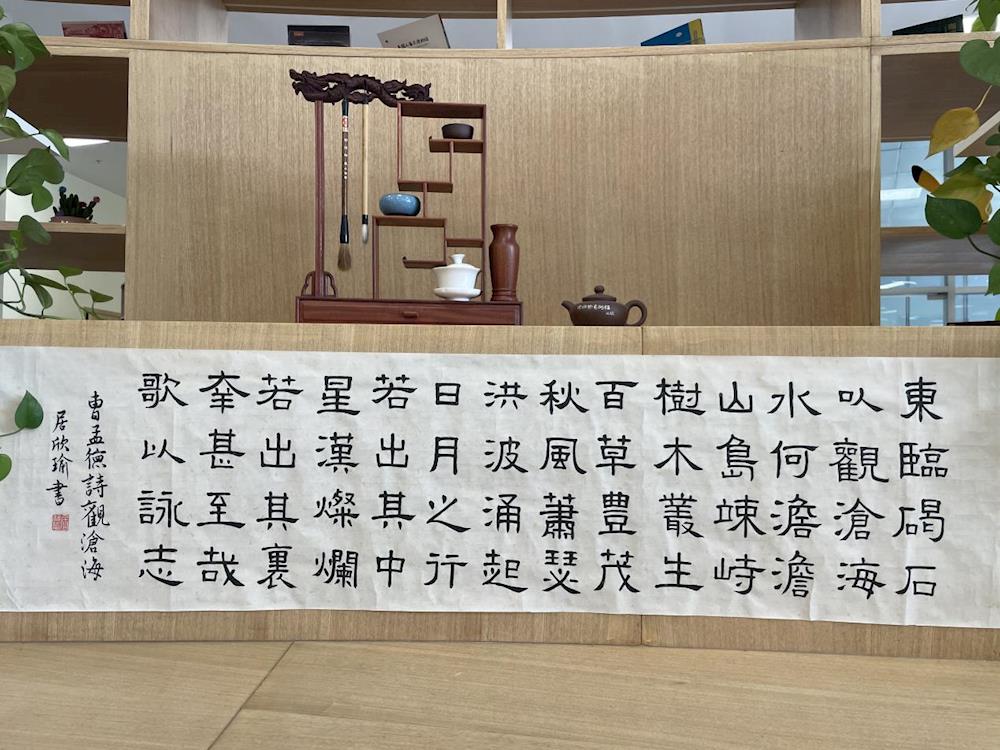 東臨碣石
㕥觀滄海
水何澹澹
山島竦峙
樹木叢生
百草豊茂
秋風蕭瑟
洪波涌起
日月之行
若出其中
星漢燦爛
若出其裏
幸甚至哉
歌以詠志
曹孟德詩觀滄海
居欣瑜書